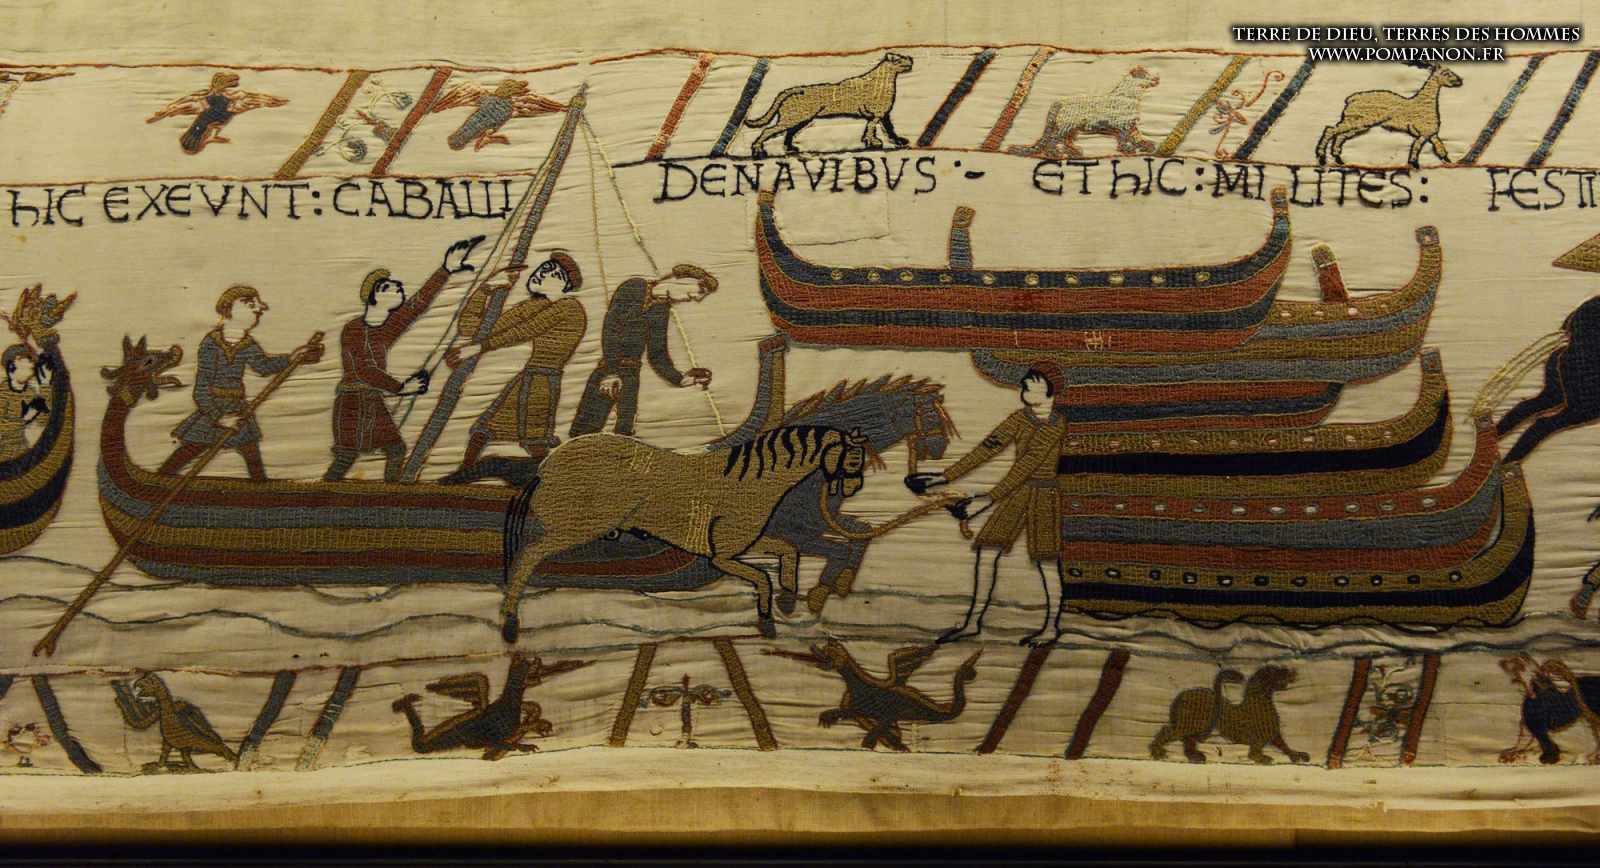 TERRE DE DIEU, TERRES DES HOMMES
WWW.POMPANON.FR
hIC EXEVNT : CABALLI DENAVIBVS :- ET hIC : MILITES : FESTI